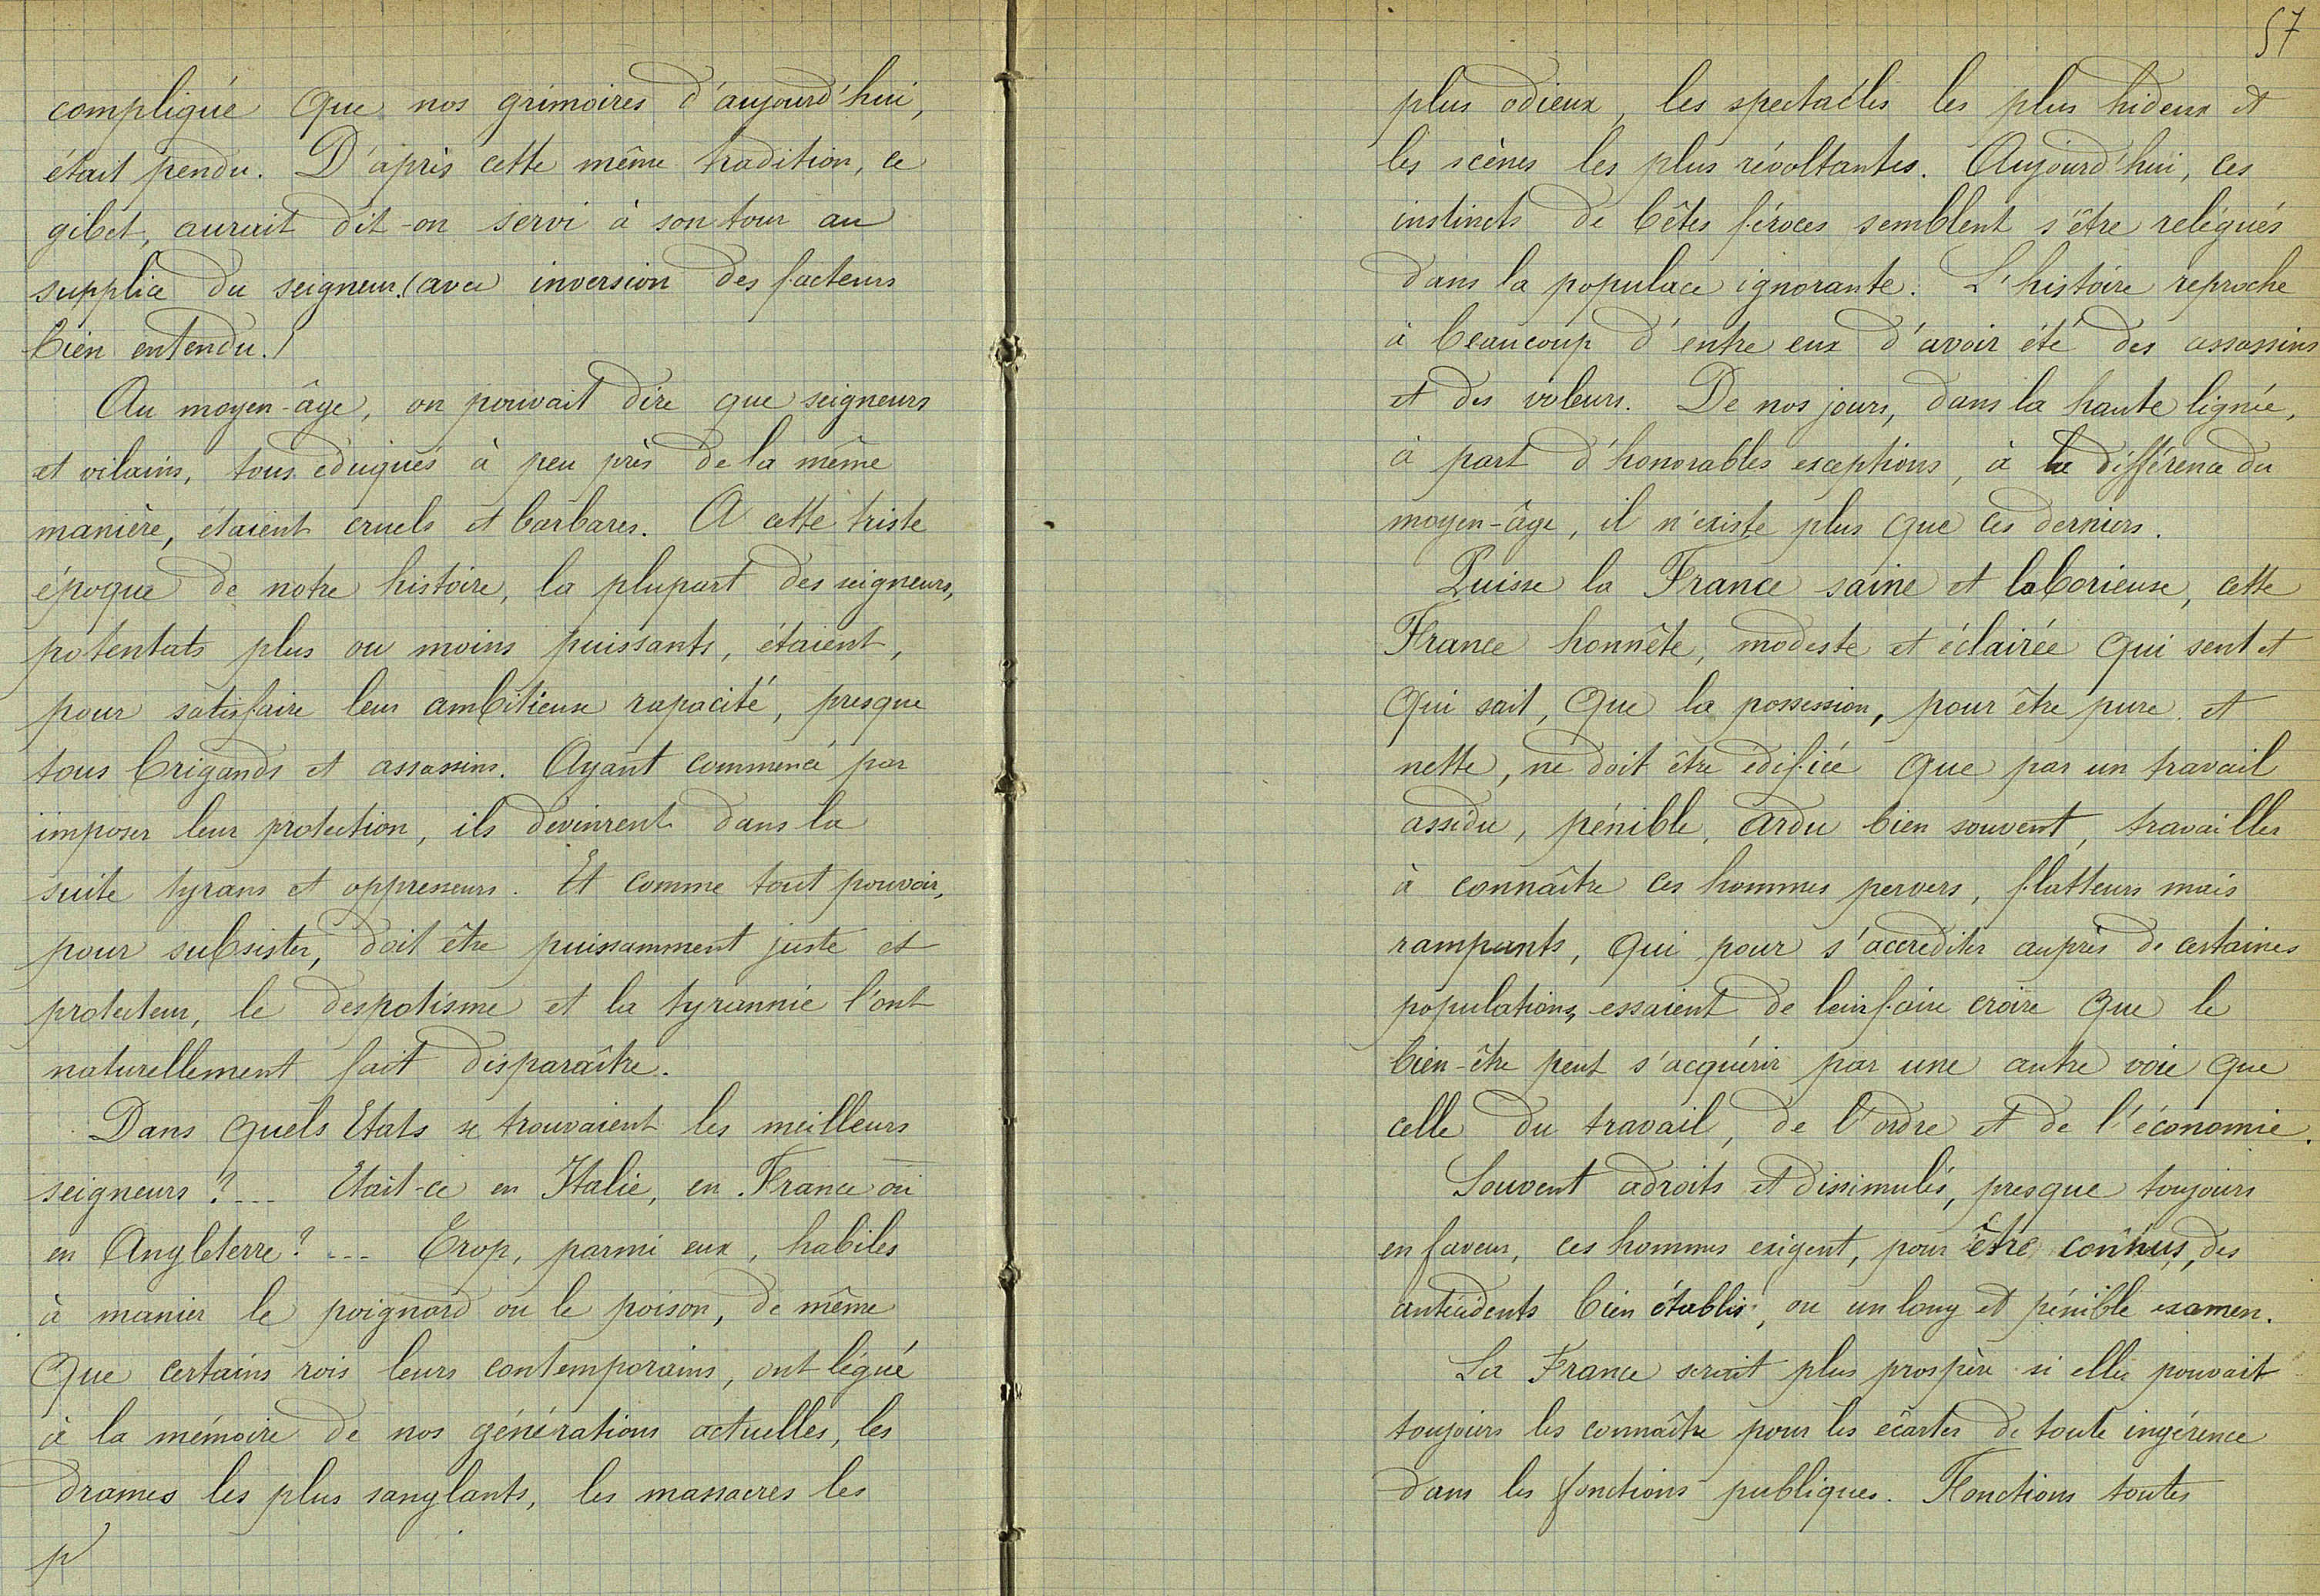 compliqué que nos grimoires d'aujourd'hui,
était pendu. D'après cette même tradition, ce
gibet, aurait dit-on servi à son tour au
supplice du seigneur. (avec inversion des facteurs
bien entendu.)
Au moyen-âge, on pouvait dire que seigneurs
et vilains, tous éduqués à peu près de la même
manière, étaient cruels et barbares. A cette triste
époque de notre histoire, la plupart des seigneurs,
potentats plus ou moins puissants, étaient,
pour satisfaire leur ambitieuse rapacité, presque
tous brigands et assassins. Ayant commencé par
imposer leur protection, ils devinrent dans la
suite tyrans et oppresseurs. Et comme tout pouvoir,
pour subsister, doit être puissamment juste et
protecteur, le despotisme et la tyrannie l'ont
naturellement fait disparaître.
Dans quels Etats se trouvaient les meilleurs
seigneurs ?... Etait-ce en Italie, en France ou
en Angleterre ? ... Trop, parmi eux, habiles
à manier le poignard ou le poison, de même
que certains rois leurs contemporains, ont légué
à la mémoire de nos générations actuelles, les
drames les plus sanglants, les massacres les
p
57
plus odieux, les spectacles les plus hideux et
les scènes les plus révoltantes. Aujourd'hui, ces
instincts de bêtes féroces semblent s'être relégués
dans la populace ignorante. L'histoire reproche
à beaucoup d'entre eux d'avoir été des assassins
et des voleurs. De nos jours, dans la haute lignée,
à part d'honorables exceptions, à la différence du
moyen-âge, il n'existe plus que ces derniers.
Puisse la France saine et laborieuse, cette
France honnête, modeste et éclairée qui sent et
qui sait, que la possession, pour être pure et
nette, ne doit être édifiée que par un travail
assidu, pénible, ardu bien souvent, travailler
à connaître ces hommes pervers, flatteurs mais
rampants, qui pour s'accréditer auprès de certaines
populations, essaient de leur faire croire que le
bien-être peut s'acquérir par une autre voie que
celle du travail, de l'ordre et de l'économie.
Souvent adroits et dissimulés, presque toujours
en faveur, ces hommes exigent, pour être connus, des
antécédents bien établis, ou un long et pénible examen.
La France serait plus prospère si elle pouvait
toujours les connaître pour les écarter de toute ingérence
dans les fonctions publiques. Fonctions toutes